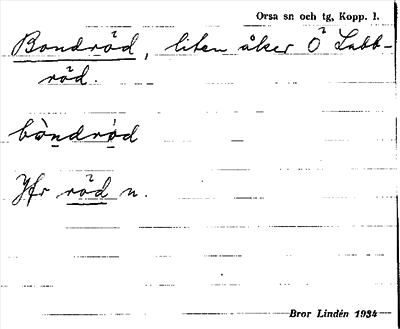 Orsa sn och tg, Kopp. l.
Bondröd, liten åker Ö Labb-
röd.
bòndrȯd
Jfr röd n.
Bror Lindén 1934